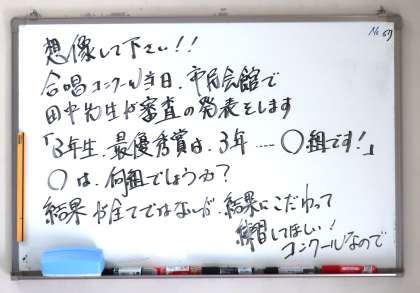 No.67
想像して下さい!!
合唱コンクール当日、市民会館で
田中先生が審査の発表をします
「3年生、最優秀賞は、3年 ‥‥ 〇組です!」
〇は、何組でしょうか?
結果が全てではないが、結果にこだわって
練習してほしい!
コンクールなので